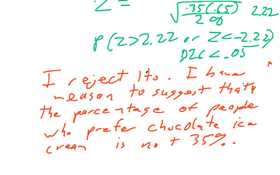 Z = √(.35)(.65)/200 2.22
P(Z>2.22 or Z<-2.22)
.026 < .05
I reject Ho. I have
reason to suggest that
the percentage of people
who prefer chocolate ice
cream is not 35%.